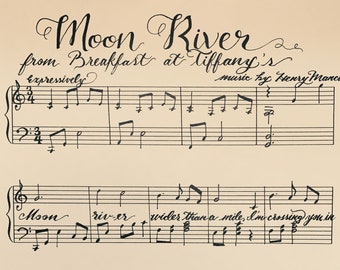 Moon River
from Breakfast at Tiffany's
Expressively
music by Henry Manc
3 4
3 4
Moon river wider than a mile, I'm crossing you in